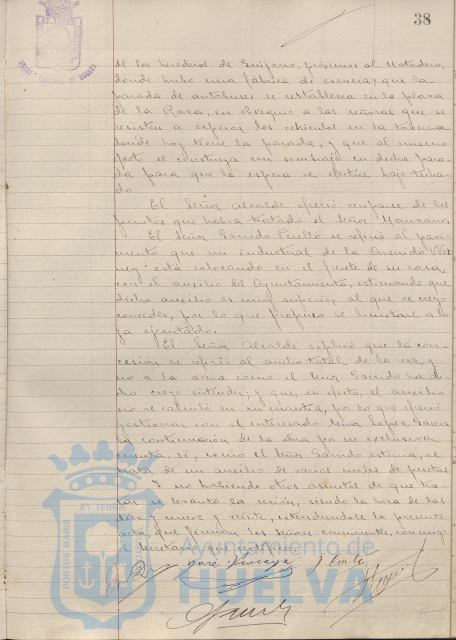 38
de los herederos de Guijarro, próximos al Matadero,
donde hubo una fábrica de esencia; que la
parada de autobuses se restablezca en la plaza
de la Rosa, en obsequio a las señoras que se
resisten a esperar los vehículos en la taberna
donde hoy tiene la parada, y que al mismo
se construya un sombrajo en dicha para-
da para que la espera se efectúe bajo techa-
do.
El Señor Alcalde ofreció ocuparse de los
puntos que había tratado el Señor Manzano.
El Señor Garrido Perelló se refirió al pavi-
mento que un industrial de la Avenida
está colocando en el frente de su casa,
con el auxilio del Ayuntamiento, estimando que
dicho auxilio es muy superior al que se creyó
conceder, por lo que propuso se limitase a lo
ya ejecutado.
El Señor Alcalde explicó que la con-
cesión se refirió al ancho total de la vía, y
no a la acera como el Señor Garrido ha di-
cho creyó entender; y que, en efecto, el auxilio
no se calculó en su cuantía, por lo que ofreció
gestionar con el interesado Señor López García
la continuación de la obra por su exclusiva
cuenta, si, como el Señor Garrido estima, se
trata de un auxilio de varios miles de pesetas.
Y no habiendo otros asuntos de que tra-
tar se levantó la sesión, siendo la hora de las
diez y nueve y veinte, extendiéndose la presente
acta, que firman los Señores concurrentes, conmigo
el Secretario que certifico.
PORTUS MARIS
ET TERRAE
Ayuntamiento de
HUELVA